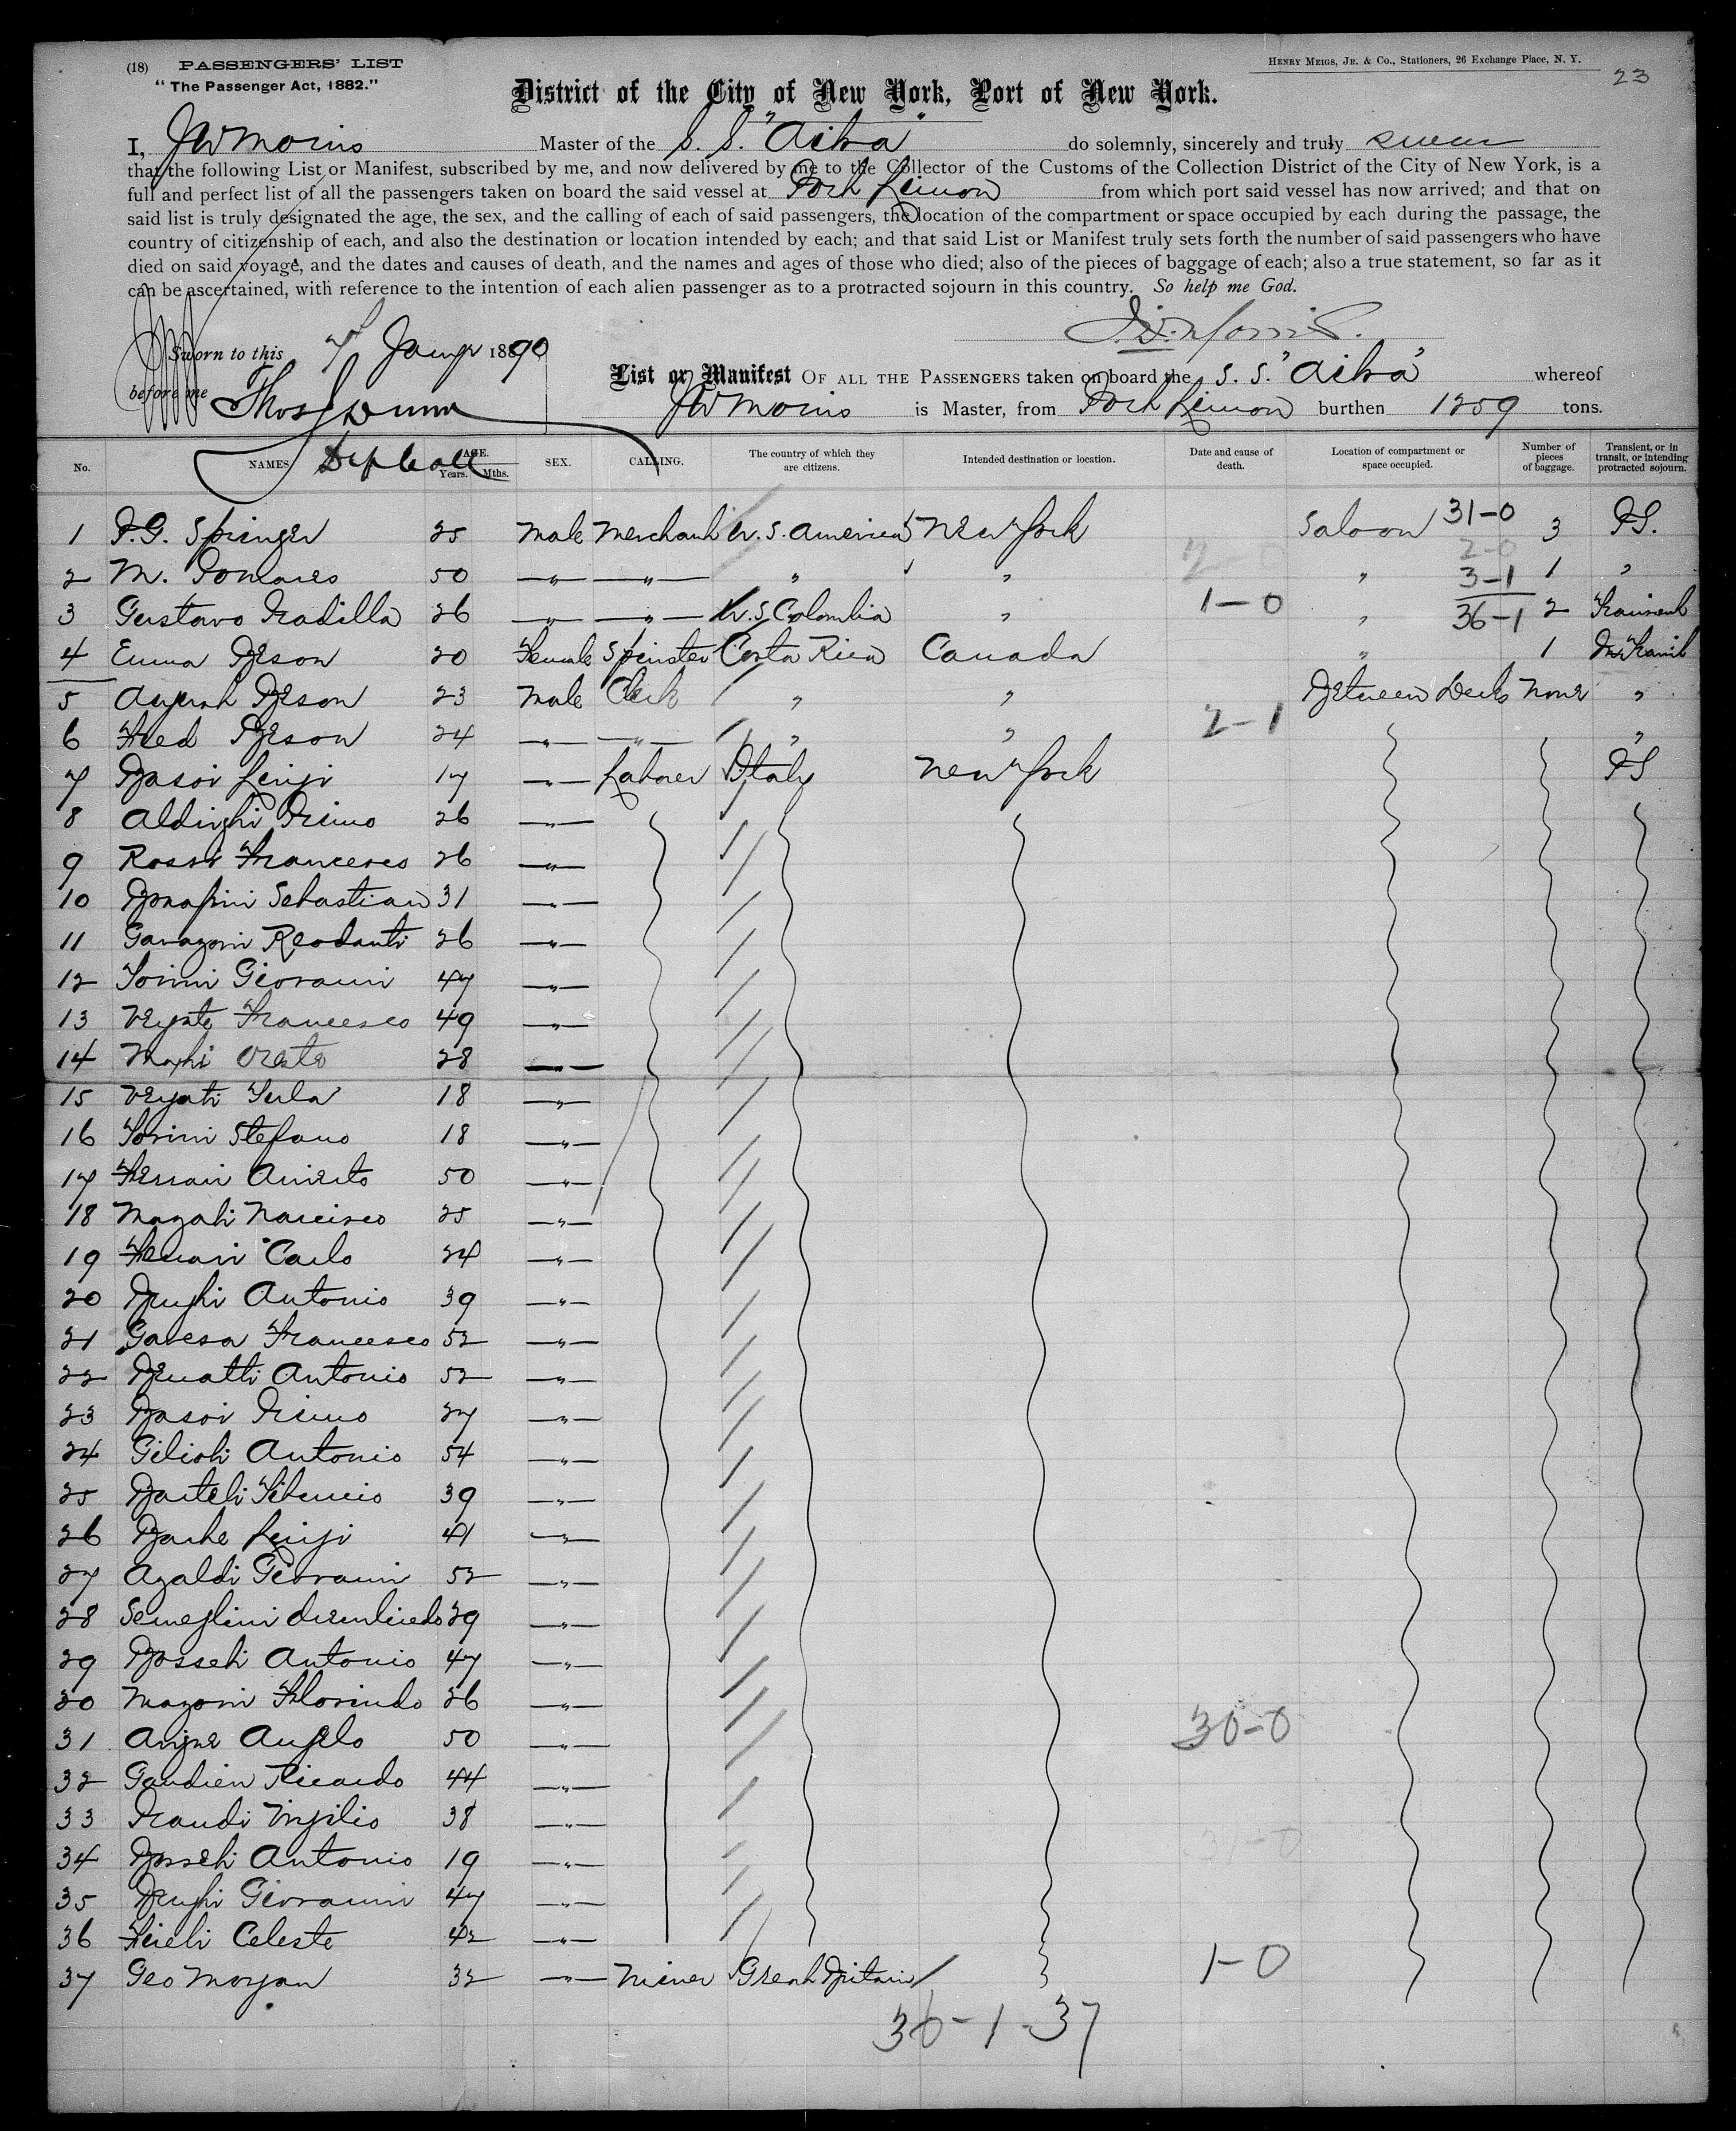 (18) PASSENGERS' LIST
HENRY MEIGS, JR. & CO., Stationers, 26 Exchange Place, N. Y.
23
"The Passenger Act, 1882."
District of the City of New York, Port of New York.
I, JW Morris Master of the S. S. "Ailsa" do solemnly, sincerely and truly swear
that the following List or Manifest, subscribed by me, and now delivered by me to the Collector of the Customs of the Collection District of the City of New York, is a
full and perfect list of all the passengers taken on board the said vessel at Port Limon from which port said vessel has now arrived; and that on
said list is truly designated the age, the sex, and the calling of each of said passengers, the location of the compartment or space occupied by each during the passage, the
country of citizenship of each, and also the destination or location intended by each; and that said List or Manifest truly sets forth the number of said passengers who have
died on said voyage, and the dates and causes of death, and the names and ages of those who died; also of the pieces of baggage of each; also a true statement, so far as it
can be ascertained, with reference to the intention of each alien passenger as to a protracted sojourn in this country. So help me God.
J.W. Morris
Sworn to this 7 Jany 1890
before me Thos J Dunn
Dep Coll
List or Manifest OF ALL THE PASSENGERS taken on board the S. S. "Ailsa" whereof
JW Morris is Master, from Port Limon burthen 1259 tons.
No. NAMES AGE. Years. Mths. SEX. CALLING. The country of which they are citizens. Intended destination or location. Date and cause of death. Location of compartment or space occupied. Number of pieces of baggage. Transient, or in transit, or intending protracted sojourn.
1 Springer 25 Male Merchant U. S. America New York Saloon 31-0 3 PS.
2-0
2 M. Pomares 50 " " " " " 3-1 1 "
3 Gustavo Padilla 26 " " U. S. Colombia " 1-0 " 36-1 2 Transient
4 Emma Beson 20 Female Spinster Costa Rica Canada " 1 In Transit
5 Beson 23 Male Clerk " " Between Decks None "
6 Fred Beson 24 " " " " 2-1 "
7 Basoi Luigi 17 " Laborer Italy New York PS
8 Aldinghi Primo 26 "
9 Rossi Francesco 26 "
10 Sebastian 31 "
11 Gavazoni 26 "
12 Torini Giovanni 47 "
13 Francesco 49 "
14 Oreste 28 "
15 18 "
16 Torini Stefano 18 "
17 Ferrari 50 "
18 Mazali Narciso 25 "
19 Ferrari Carlo 24 "
20 Benghi Antonio 39 "
21 Gavesa Francesco 52 "
22 Benatti Antonio 52 "
23 Basoi Primo 27 "
24 Gilioli Antonio 54 "
25 Barteli 39 "
26 Luigi 41 "
27 Azaldi Giovanni 52 "
28 Semeglini 29 "
29 Bosseli Antonio 47 "
30 Mazoni Florindo 26 "
31 Angelo 50 " 30-0
32 Ricardo 44 "
33 Prandi Virgilio 38 "
34 Bosseli Antonio 19 "
35 Benghi Giovanni 47 "
36 Celeste 42 "
37 Geo Morgan 32 " Miner Great Britain 1-0
36-1-37